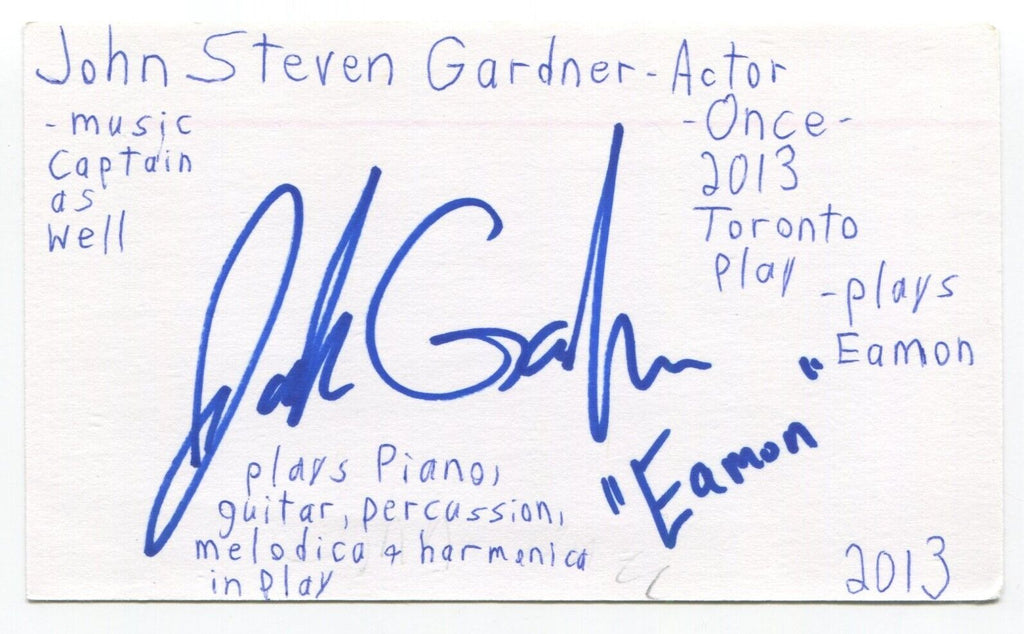 John Steven Gardner - Actor
- music
Captain
as
well
- Once -
2013
Toronto
Play
- plays
Eamon
"Eamon"
plays Piano,
guitar, percussion,
melodica & harmonica
in play
2013